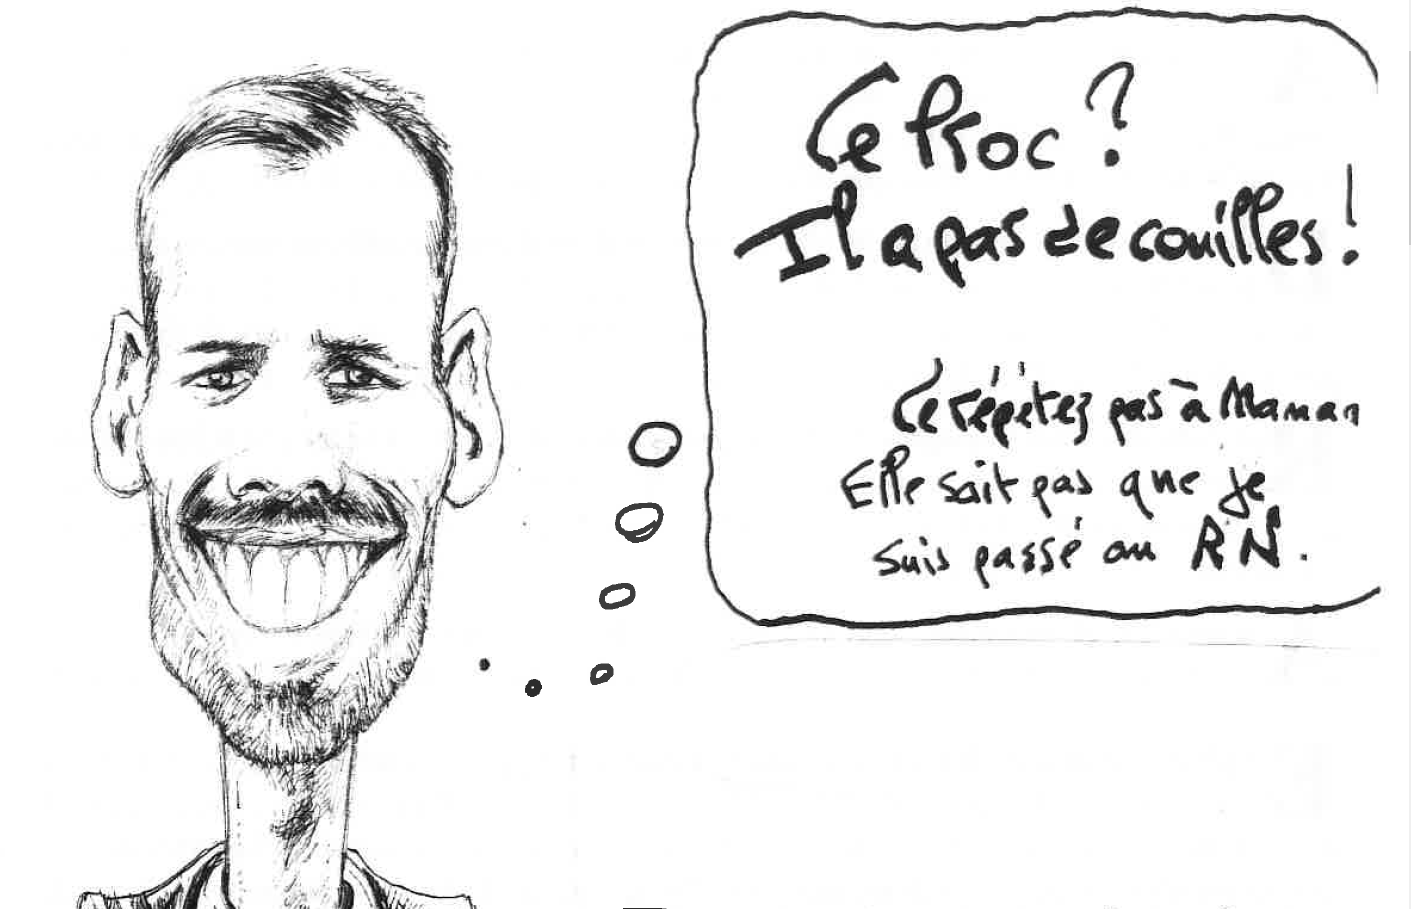 Ce Proc ?
Il a pas de couilles !
Le répétez pas à Maman
Elle sait pas que je
suis passé au RN.